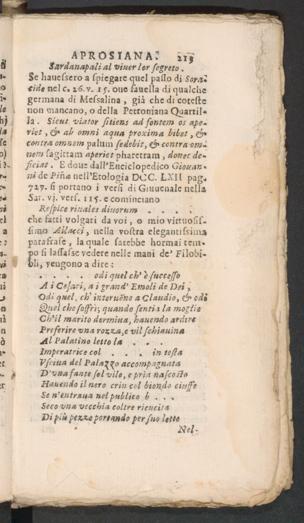 APROSIANA. 213
Sardanapali al viuer lor segreto.
Se hauessero a spiegare quel passo di Sora-
cide nel c. 26. v. 15. oue fauella di qualche
germana di Messalina, già che di coteste
non mancano, o della Petroniana Quartil-
la. Sicut viator sitiens ad fontem os ape-
riet, & ab omni aqua proxima bibet, &
contra omnem palum sedebit, & contra om-
nem sagittam aperiet pharetram, donec de-
ficiat. E doue dall'Enciclopedico Giouan-
ni de Piña nell'Etologia DCC. LXII pag.
727. si portano i versi di Giuuenale nella
Sat. vj. vers. 115. e cominciano
Respice riuales diuorum . . . .
che fatti volgari da voi, o mio virtuosis-
simo Ailacci, nella vostra elegantissima
parafrase, la quale sarebbe hormai tem-
po si lasciasse vedere nelle mani de' Filobi-
bli, vengono a dire:
. . . . . odi quel ch' è successo
A i Cesari, a i grand' Emoli de Dei,
Odi quel, ch' interuēno a Claudio, & odi
Quel che soffrì; quando sentì la moglie
Ch'il marito dormiua, hauendo ardire
Preferire vna rozza, e vil schiauina
Al Palatino letto la . . .
Imperatrice col . . . . in testa
Vsciua del Palazzo accompagnata
D'vna fante sol vilo, e pria nascosto
Hauendo il nero crin col biondo ciuffo
Se n'entraua nel publico b . . .
Seco vna vecchia coltre riencita
Di più pezze portando per suo letto
Nel-